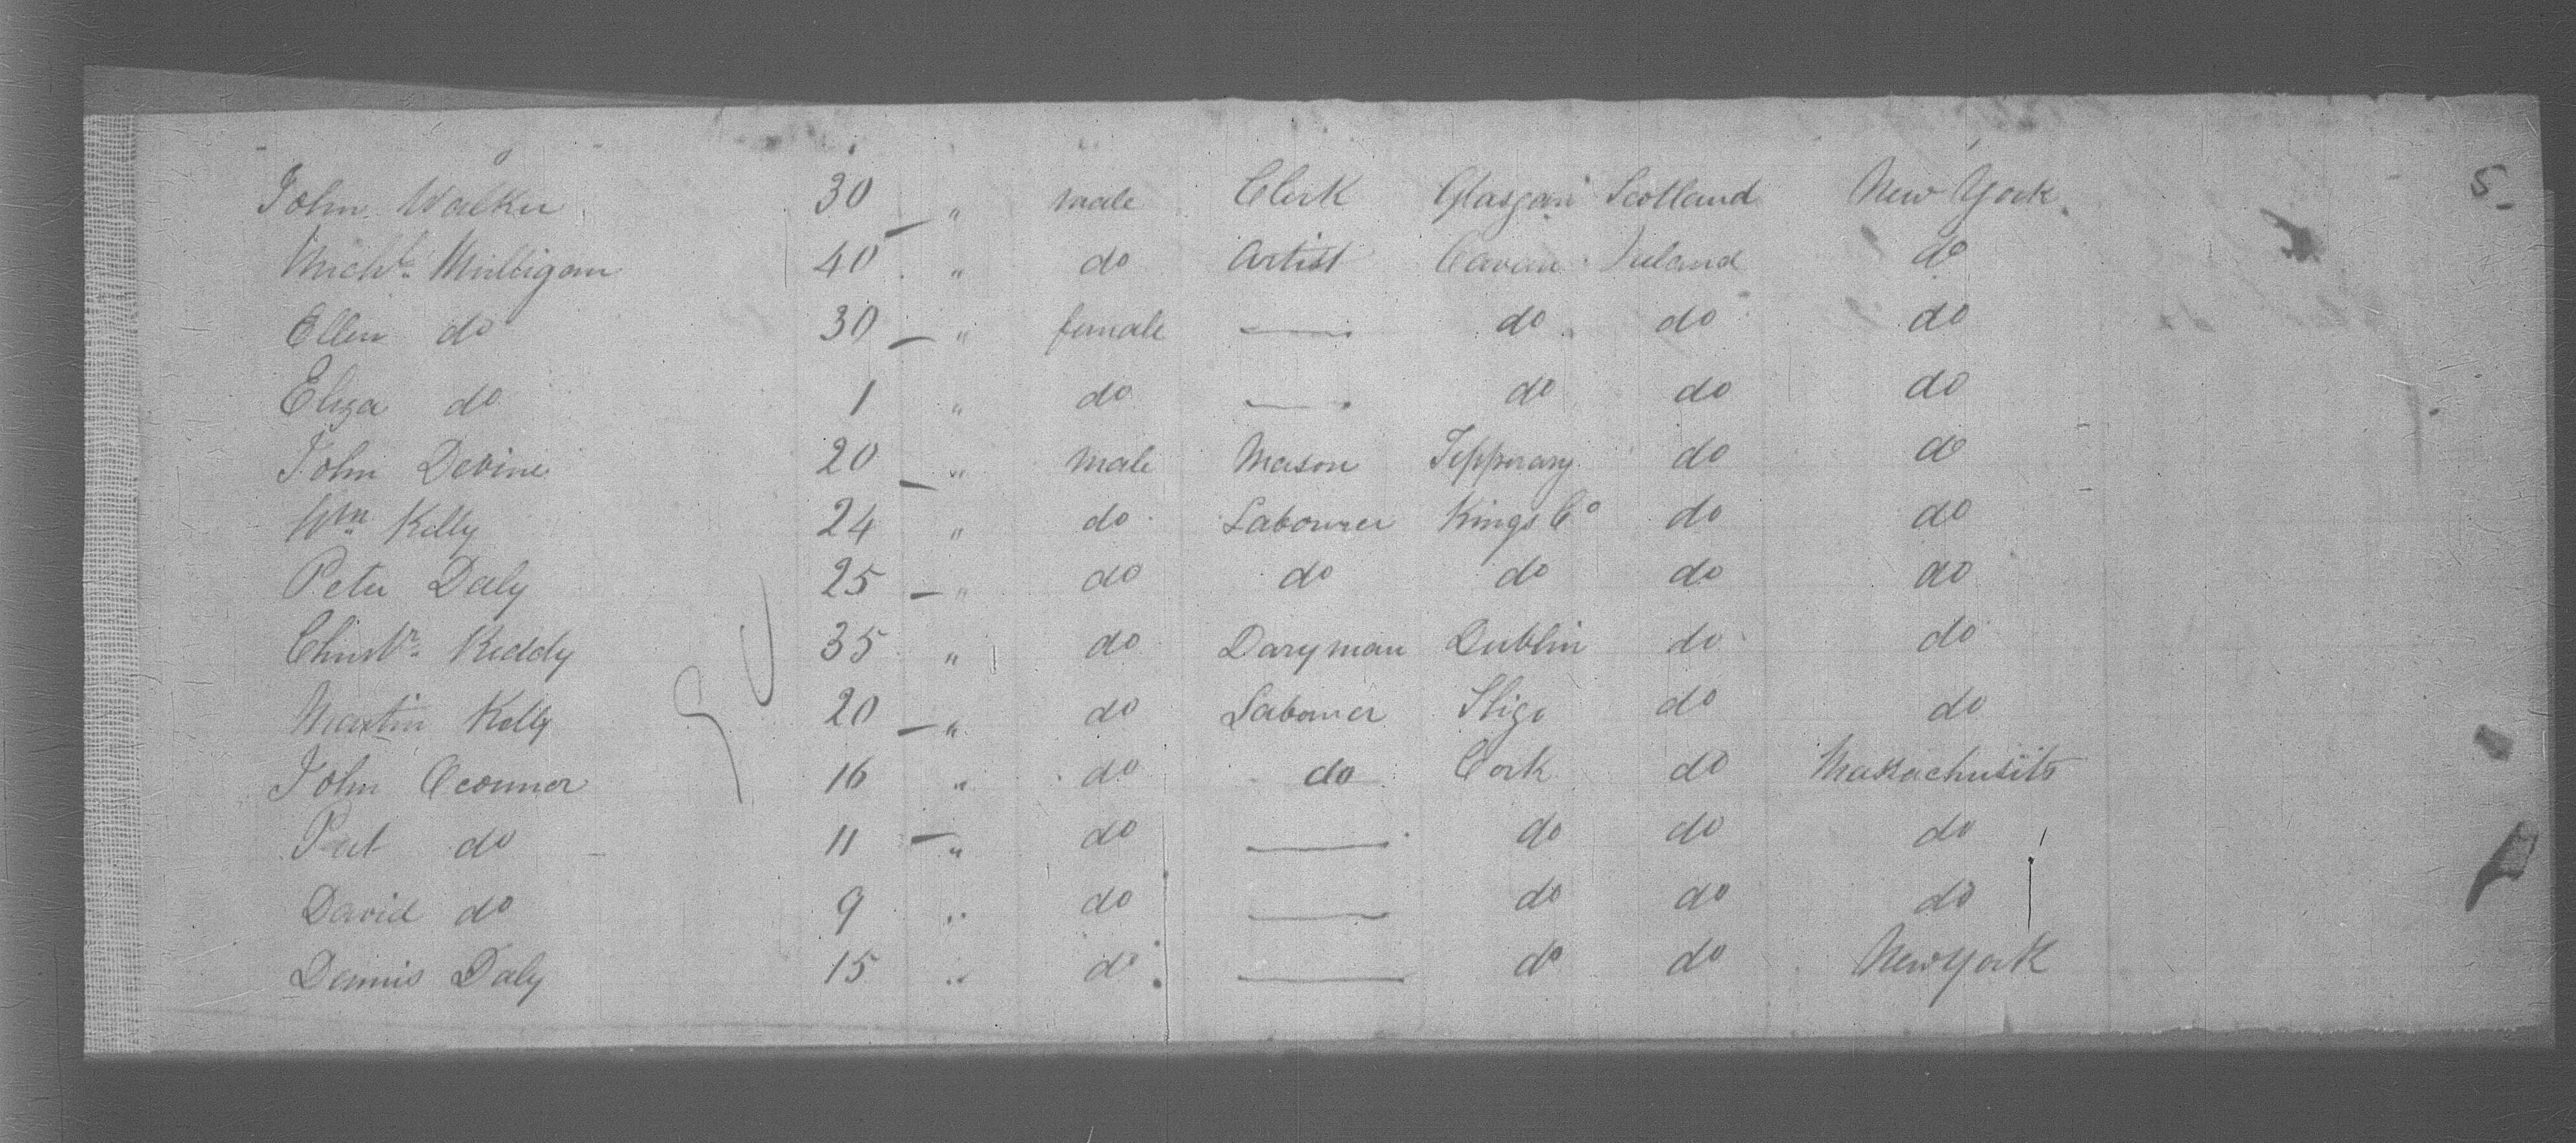 5
John Walker 30 " male Clerk Glasgow Scotland New York
Michl. Mulligan 40 " do Artist Cavan Ireland do
Ellen do 30 " female — do do do
Eliza do 1 " do — do do do
John Devine 20 " male Mason Tipperary do do
Wm Kelly 24 " do Labourer Kings Co do do
Peter Daly 25 " do do do do do
Christr. Reddy 35 " do Daryman Dublin do do
Martin Kelly 20 " do Labourer Sligo do do
John Oconnor 16 " do do Cork do Massachusits
Pat do 11 " do — do do do
David do 9 " do — do do do
Dennis Daly 15 " do — do do New York